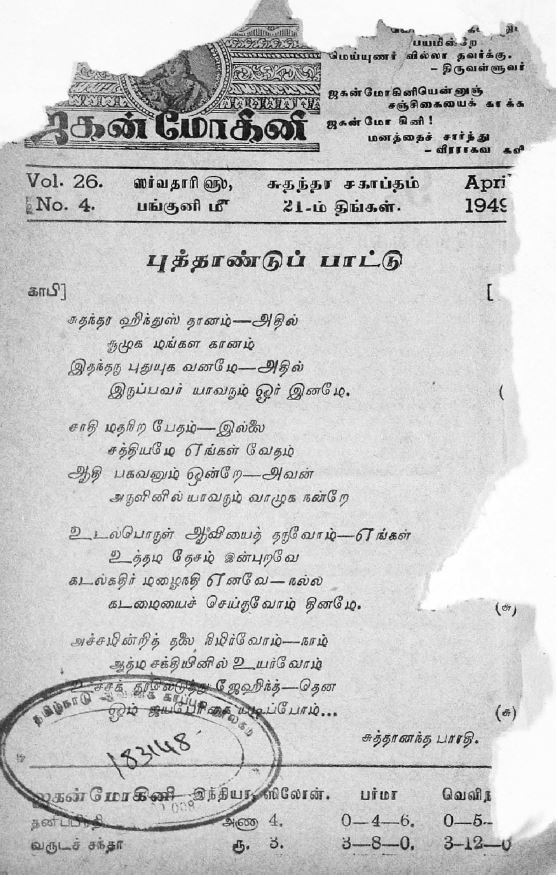 பயமின்றே
மெய்யுணர் வில்லா தவர்க்கு.
- திருவள்ளுவர்
ஜகன்மோகினியென்னுஞ்
சஞ்சிகையைக் காக்க
ஜகன்மோ கினி!
மனத்தைச் சார்ந்து
- வீரராகவ கவி
ஜகன்மோகினி
Vol. 26. ஸர்வதாரி௵, சுதந்தர சகாப்தம் Apri
No. 4. பங்குனி ௴ 21-ம் திங்கள். 1949
புத்தாண்டுப் பாட்டு
காபி] [
சுதந்தர ஹிந்துஸ் தானம்—அதில்
சூழுக மங்கள கானம்
இதந்தரு புதுயுக வனமே—அதில்
இருப்பவர் யாவரும் ஓர் இனமே. (
சாதி மதநிற பேதம்—இல்லை
சத்தியமே எங்கள் வேதம்
ஆதி பகவனும் ஒன்றே—அவன்
அருளினில் யாவரும் வாழுக நன்றே
உடல்பொருள் ஆவியைத் தருவோம்—எங்கள்
உத்தம தேசம் இன்புறவே
கடல்கதிர் மழைநதி எனவே—நல்ல
கடமையைச் செய்துவோம் தினமே. (சு)
அச்சமின்றித் தலை நிமிர்வோம்—நாம்
ஆத்ம சக்தியினில் உயர்வோம்
உச்சக் குரலெடுத்து ஜேஹிந்த்—தென
ஓம் ஜயபேரிகை யடிப்போம்... (சு)
சுத்தானந்த பாரதி.
தமிழ்நாடு ஆவணக் காப்பக நூலகம்
183148
ஜகன்மோகினி இந்தியா, ஸிலோன். பர்மா வெளிந
தனிப்பிரதி அணா 4. 0—4—6. 0—5—
வருடச் சந்தா ரூ. 3. 3—8—0. 3—12—0